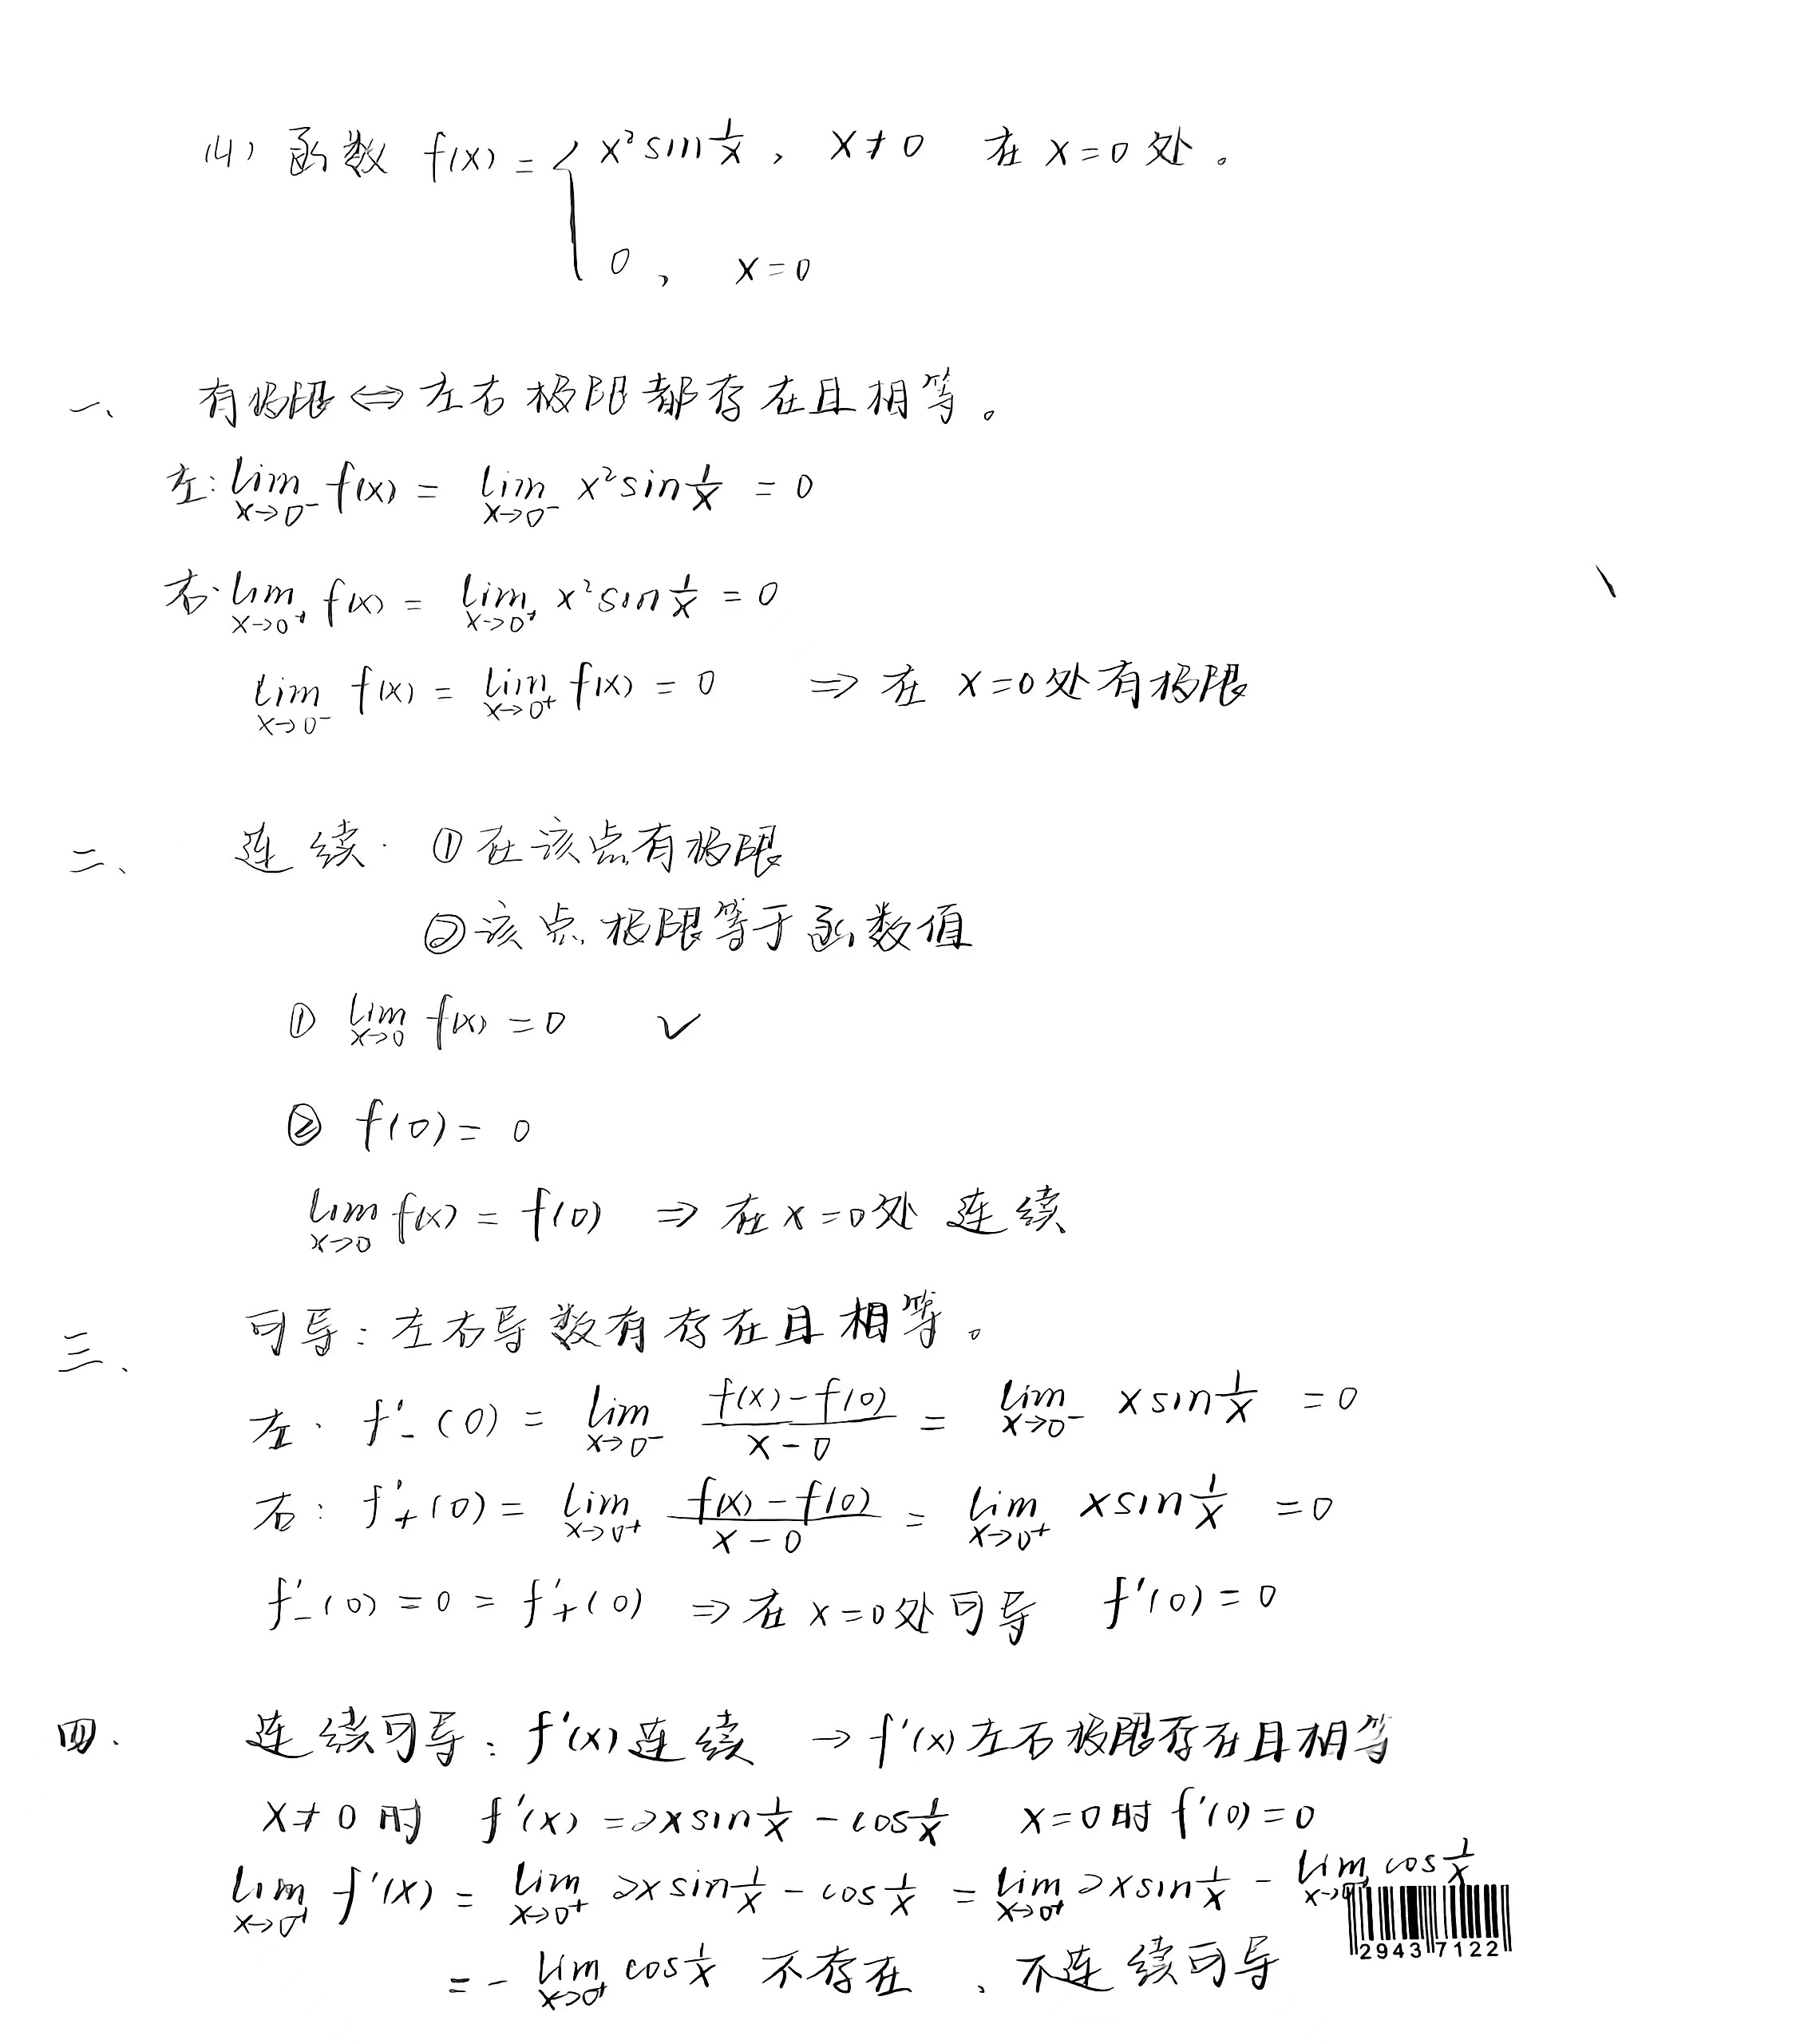 (4) 函数 f(x) = { x² sin 1/x , x≠0 在 x=0 处。
0 , x=0
一、 有极限 ⇔ 左右极限都存在且相等。
左: lim x→0⁻ f(x) = lim x→0⁻ x² sin 1/x = 0
右: lim x→0⁺ f(x) = lim x→0⁺ x² sin 1/x = 0
lim x→0⁻ f(x) = lim x→0⁺ f(x) = 0 ⇒ 在 x=0处有极限
二、 连续: ①在该点有极限
②该点极限等于函数值
① lim x→0 f(x) = 0 ✓
② f(0) = 0
lim x→0 f(x) = f(0) ⇒ 在x=0处 连续
三、 可导: 左右导数有存在且相等。
左: f'₋(0) = lim x→0⁻ (f(x)-f(0))/(x-0) = lim x→0⁻ x sin 1/x = 0
右: f'₊(0) = lim x→0⁺ (f(x)-f(0))/(x-0) = lim x→0⁺ x sin 1/x = 0
f'₋(0) = 0 = f'₊(0) ⇒ 在 x=0处可导 f'(0) = 0
四. 连续可导: f'(x)连续 → f'(x)左右极限存在且相等
x≠0时 f'(x) = 2x sin 1/x - cos 1/x x=0时 f'(0) = 0
lim x→0⁺ f'(x) = lim x→0⁺ 2x sin 1/x - cos 1/x = lim x→0⁺ 2x sin 1/x - lim x→0⁺ cos 1/x
= - lim x→0⁺ cos 1/x 不存在 、不连续可导
29437122